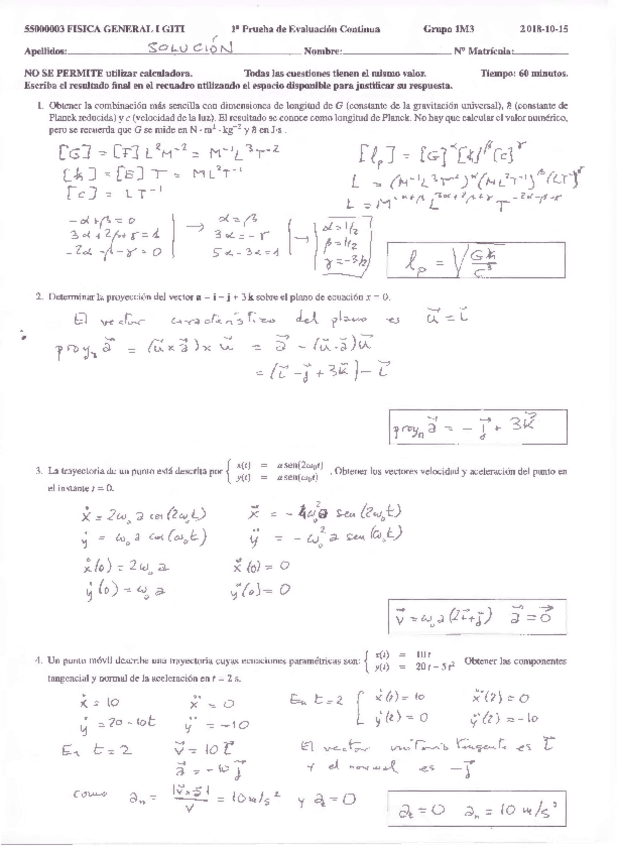 55000003 FISICA GENERAL I GITI 1ª Prueba de Evaluación Continua Grupo 1M3 2018-10-15
Apellidos: SOLUCIÓN Nombre: Nº Matrícula:
NO SE PERMITE utilizar calculadora. Todas las cuestiones tienen el mismo valor. Tiempo: 60 minutos.
Escriba el resultado final en el recuadro utilizando el espacio disponible para justificar su respuesta.
1. Obtener la combinación más sencilla con dimensiones de longitud de G (constante de la gravitación universal), ℏ (constante de
Planck reducida) y c (velocidad de la luz). El resultado se conoce como longitud de Planck. No hay que calcular el valor numérico,
pero se recuerda que G se mide en N·m²·kg⁻² y ℏ en J·s.
[G] = [F] L² M⁻² = M⁻¹ L³ T⁻² [ℓp] = [G]^α [ℏ]^β [c]^γ
[ℏ] = [E] T = M L² T⁻¹ L = (M⁻¹ L³ T⁻²)^α (M L² T⁻¹)^β (L T⁻¹)^γ
[c] = L T⁻¹ L = M^(-α+β) L^(3α+2β+γ) T^(-2α-β-γ)
-α+β=0 α=β α=1/2
3α+2β+γ=1 → 3α=-γ → β=1/2
-2α-β-γ=0 5α-3α=1 γ=-3/2
ℓp = √(Gℏ/c³)
2. Determinar la proyección del vector a = i − j + 3 k sobre el plano de ecuación x = 0.
El vector característico del plano es u⃗ = i⃗
proyπ a⃗ = (u⃗ × a⃗) × u⃗ = a⃗ − (u⃗·a⃗)u⃗
= (i⃗ − j⃗ + 3k⃗) − i⃗
proyπ a⃗ = − j⃗ + 3k⃗
3. La trayectoria de un punto está descrita por { x(t) = a sen(2ω₀t) y(t) = a sen(ω₀t) . Obtener los vectores velocidad y aceleración del punto en
el instante t = 0.
ẋ = 2ω₀ a cos(2ω₀t) ẍ = −4ω₀² a sen(2ω₀t)
ẏ = ω₀ a cos(ω₀t) ÿ = −ω₀² a sen(ω₀t)
ẋ(0) = 2ω₀ a ẍ(0) = 0
ẏ(0) = ω₀ a ÿ(0) = 0
v⃗ = ω₀ a(2i⃗+j⃗) a⃗ = 0⃗
4. Un punto móvil describe una trayectoria cuyas ecuaciones paramétricas son: { x(t) = 10 t y(t) = 20 t − 5 t² Obtener las componentes
tangencial y normal de la aceleración en t = 2 s.
ẋ = 10 ẍ = 0 En t=2 { ẋ(2) = 10 ẍ(2) = 0
ẏ = 20 − 10t ÿ = −10 ẏ(2) = 0 ÿ(2) = −10
En t=2 v⃗ = 10 i⃗ El vector unitario tangente es i⃗
a⃗ = −10 j⃗ y el normal es −j⃗
como aₙ = |v⃗×a⃗|/v = 10 m/s² y aₜ = 0
aₜ = 0 aₙ = 10 m/s²